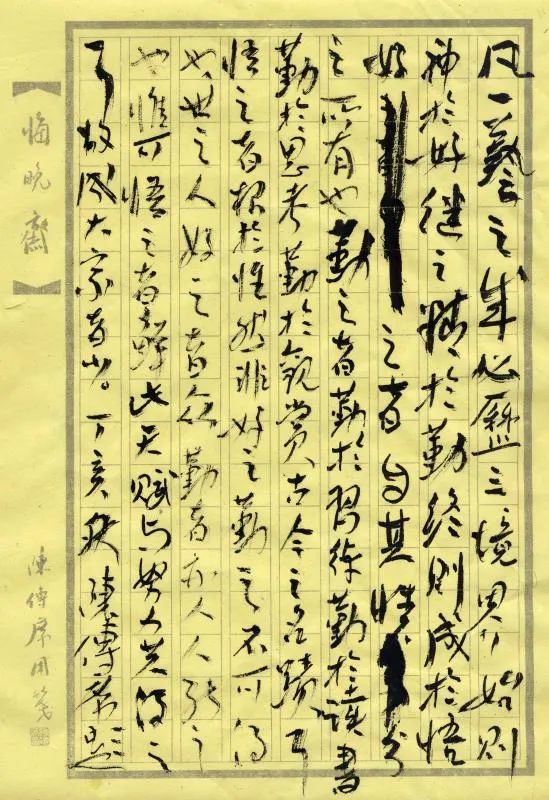 凡一藝之成必歷三境界始則
神於好繼之精於勤終則成於悟
好之者自其性分
之所有也勤之者勤於習練勤於讀書
勤於思考勤於觀賞古今之名蹟耳
悟之者根於性然非好之勤之不可得
也世之人好之者眾勤者亦人人能之
也惟可悟之者鮮此天賦與努力共得之
耳故成大家者少。丁亥秋陳傳席題
【悔晚齋】
陳傳席用箋